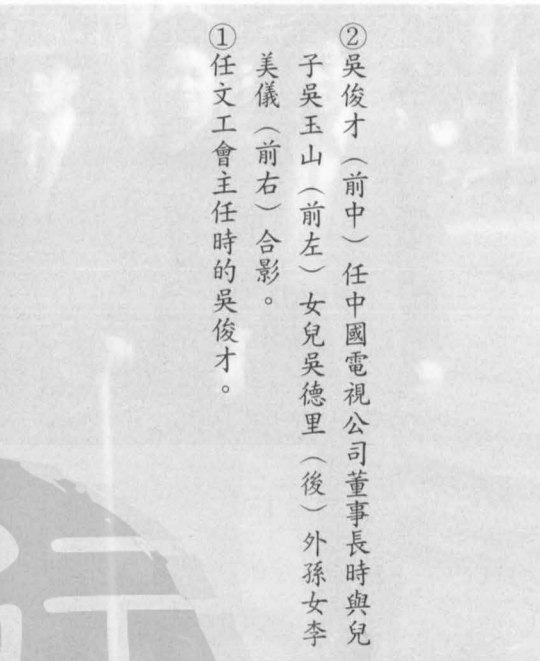 ②吳俊才（前中）任中國電視公司董事長時與兒
子吳玉山（前左）女兒吳德里（後）外孫女李
美儀（前右）合影。
①任文工會主任時的吳俊才。